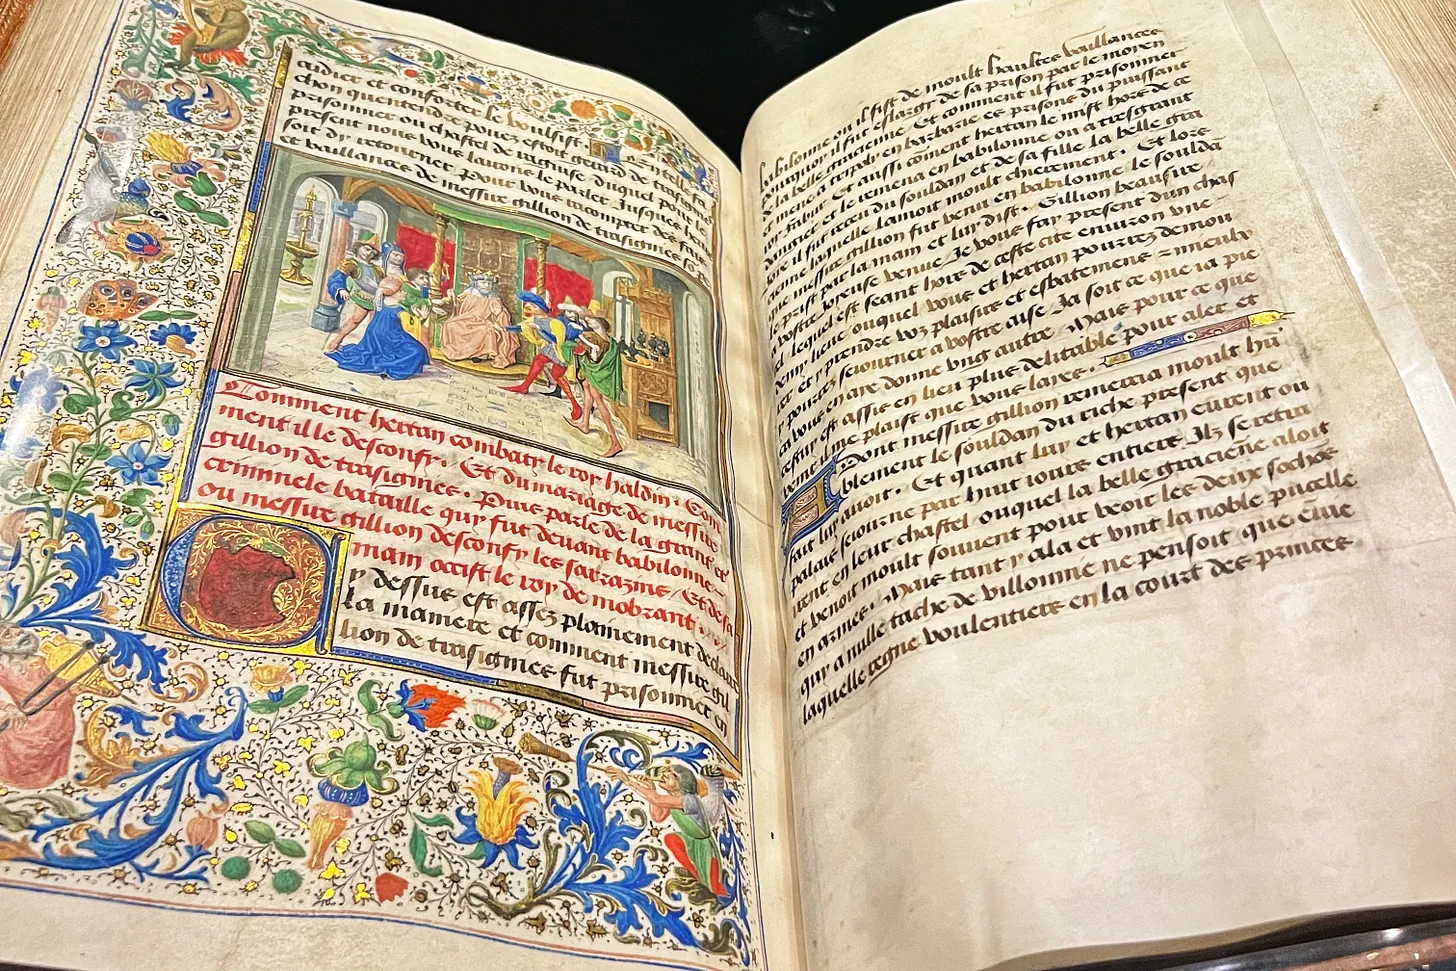 aidier et conforter le voulsist.
chon quentendre povez estoit gerard de trasignies
prisonnier ou chastel de raguse duquel pour le
present nous vous lairons le parler Jusques heure
soit dy retourner. Pour vous racompter des fais
et vaillances de messire gillion de trasignies
Comment hertan combaty le roy haldin. Com
ment il le desconfy. Et du mariage de messire
gillion de trasignies. Puis parle de la grant et
crimnele bataille qui fut devant babilonne.
ou messire gillion desconfy les sarrazins. Et de sa
main occist le roy de mobrant.
Cy dessus est assez plainement declairé
la maniere et comment messire gil
lion de trasignies fut prisonnier en
babilonne ou il fist de moult haultes vaillances
pourquoy il fut eslargy de sa prison par le moyen
de la belle gracienne. Et comment il fut prisonnier
mené a tripoly en barbarie es prisons du puissant
roy fabur. Et aussi coment hertan le mist hors de ce
dangier et le remena en babilonne ou a tresgrant
joye il fut receu du souldan et de sa fille la belle gra
cienne laquelle lamoit moult chierement. Et lors
que messire gillion fut venu en babilonne le souldã
le prist par la main et luy dist. Gillion beau sire
de vostre venue Je vous fay present dun chas
tel lequel est seant hors de ceste cite environ une
demy lieue ouquel vous et hertan pourrez demou
rer et y prendre voz plaisirs et esbatemens
y pourrez seiourner a vostre aise Ja soit ce que la pie
ca vous en aye donne ung autre. Mais pour ce que
cestui est assis en lieu plus delitable pour aler et
venir il me plaist que vous layes.
Dont messire gillion remercia moult hũ
blement le souldan du riche present que
fait luy avoit. Et quant luy et hertan eurent ou
palais seiourne par huit jours entiers Ilz se retrai
rent en leur chastel ouquel la belle gracienẽ aloit
et venoit moult souvent pour veoir les deux sachãs
en armes. Mais tant y ala et vint la noble pucelle
qui a nulle tache de villonnie ne pensoit que envie
laquelle regne voulentiers en la court des princes